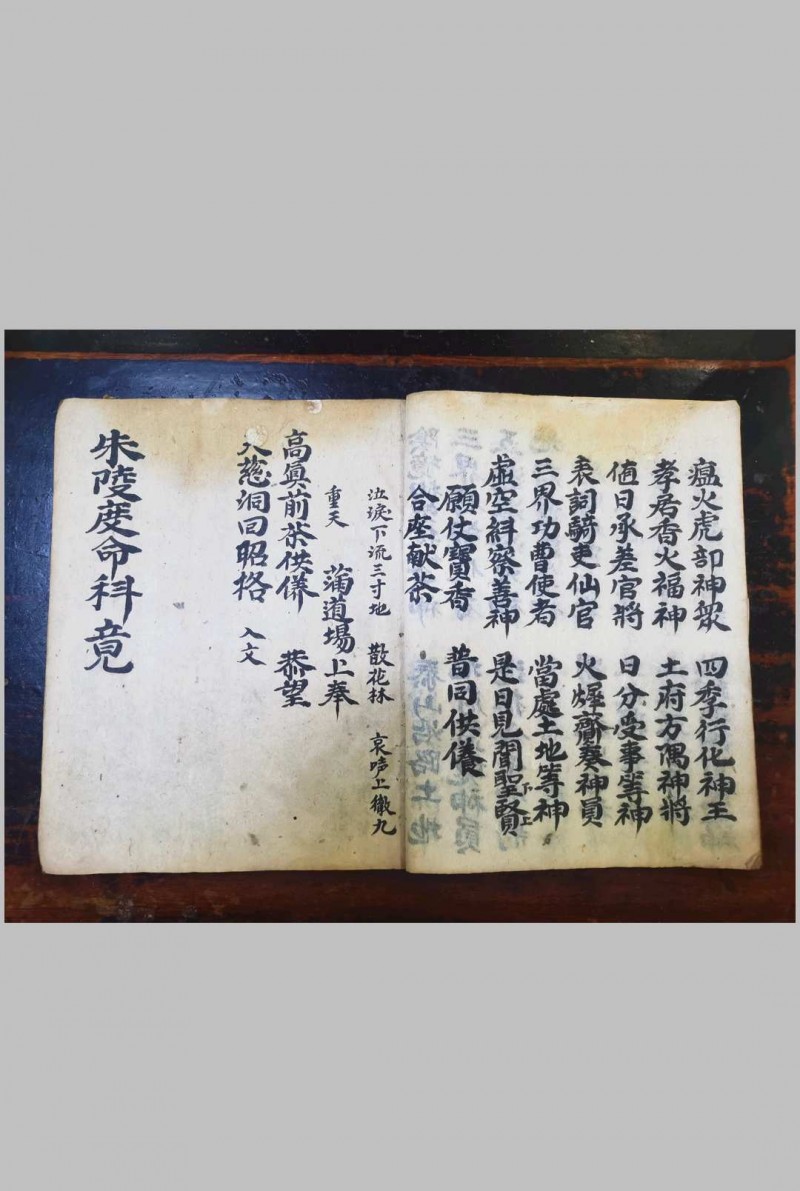 瘟火虎部神衆 四季行化神王
孝居香火福神 土府方隅神將
值日承差官將 日分受事等神
表詞騎吏仙官 火燁齋奏神員
三界功曹使者 當處土地等神
虛空糾察善神 是日見聞聖賢 下上
願仗寶香 普同供養
合座献茶
泣淚下流三寸地 散花林 哀哼上徹九
重天 蒲道場上奉
高眞前茶供儀 恭望
大慈洞回昭格 入文
朱陵度命科竟